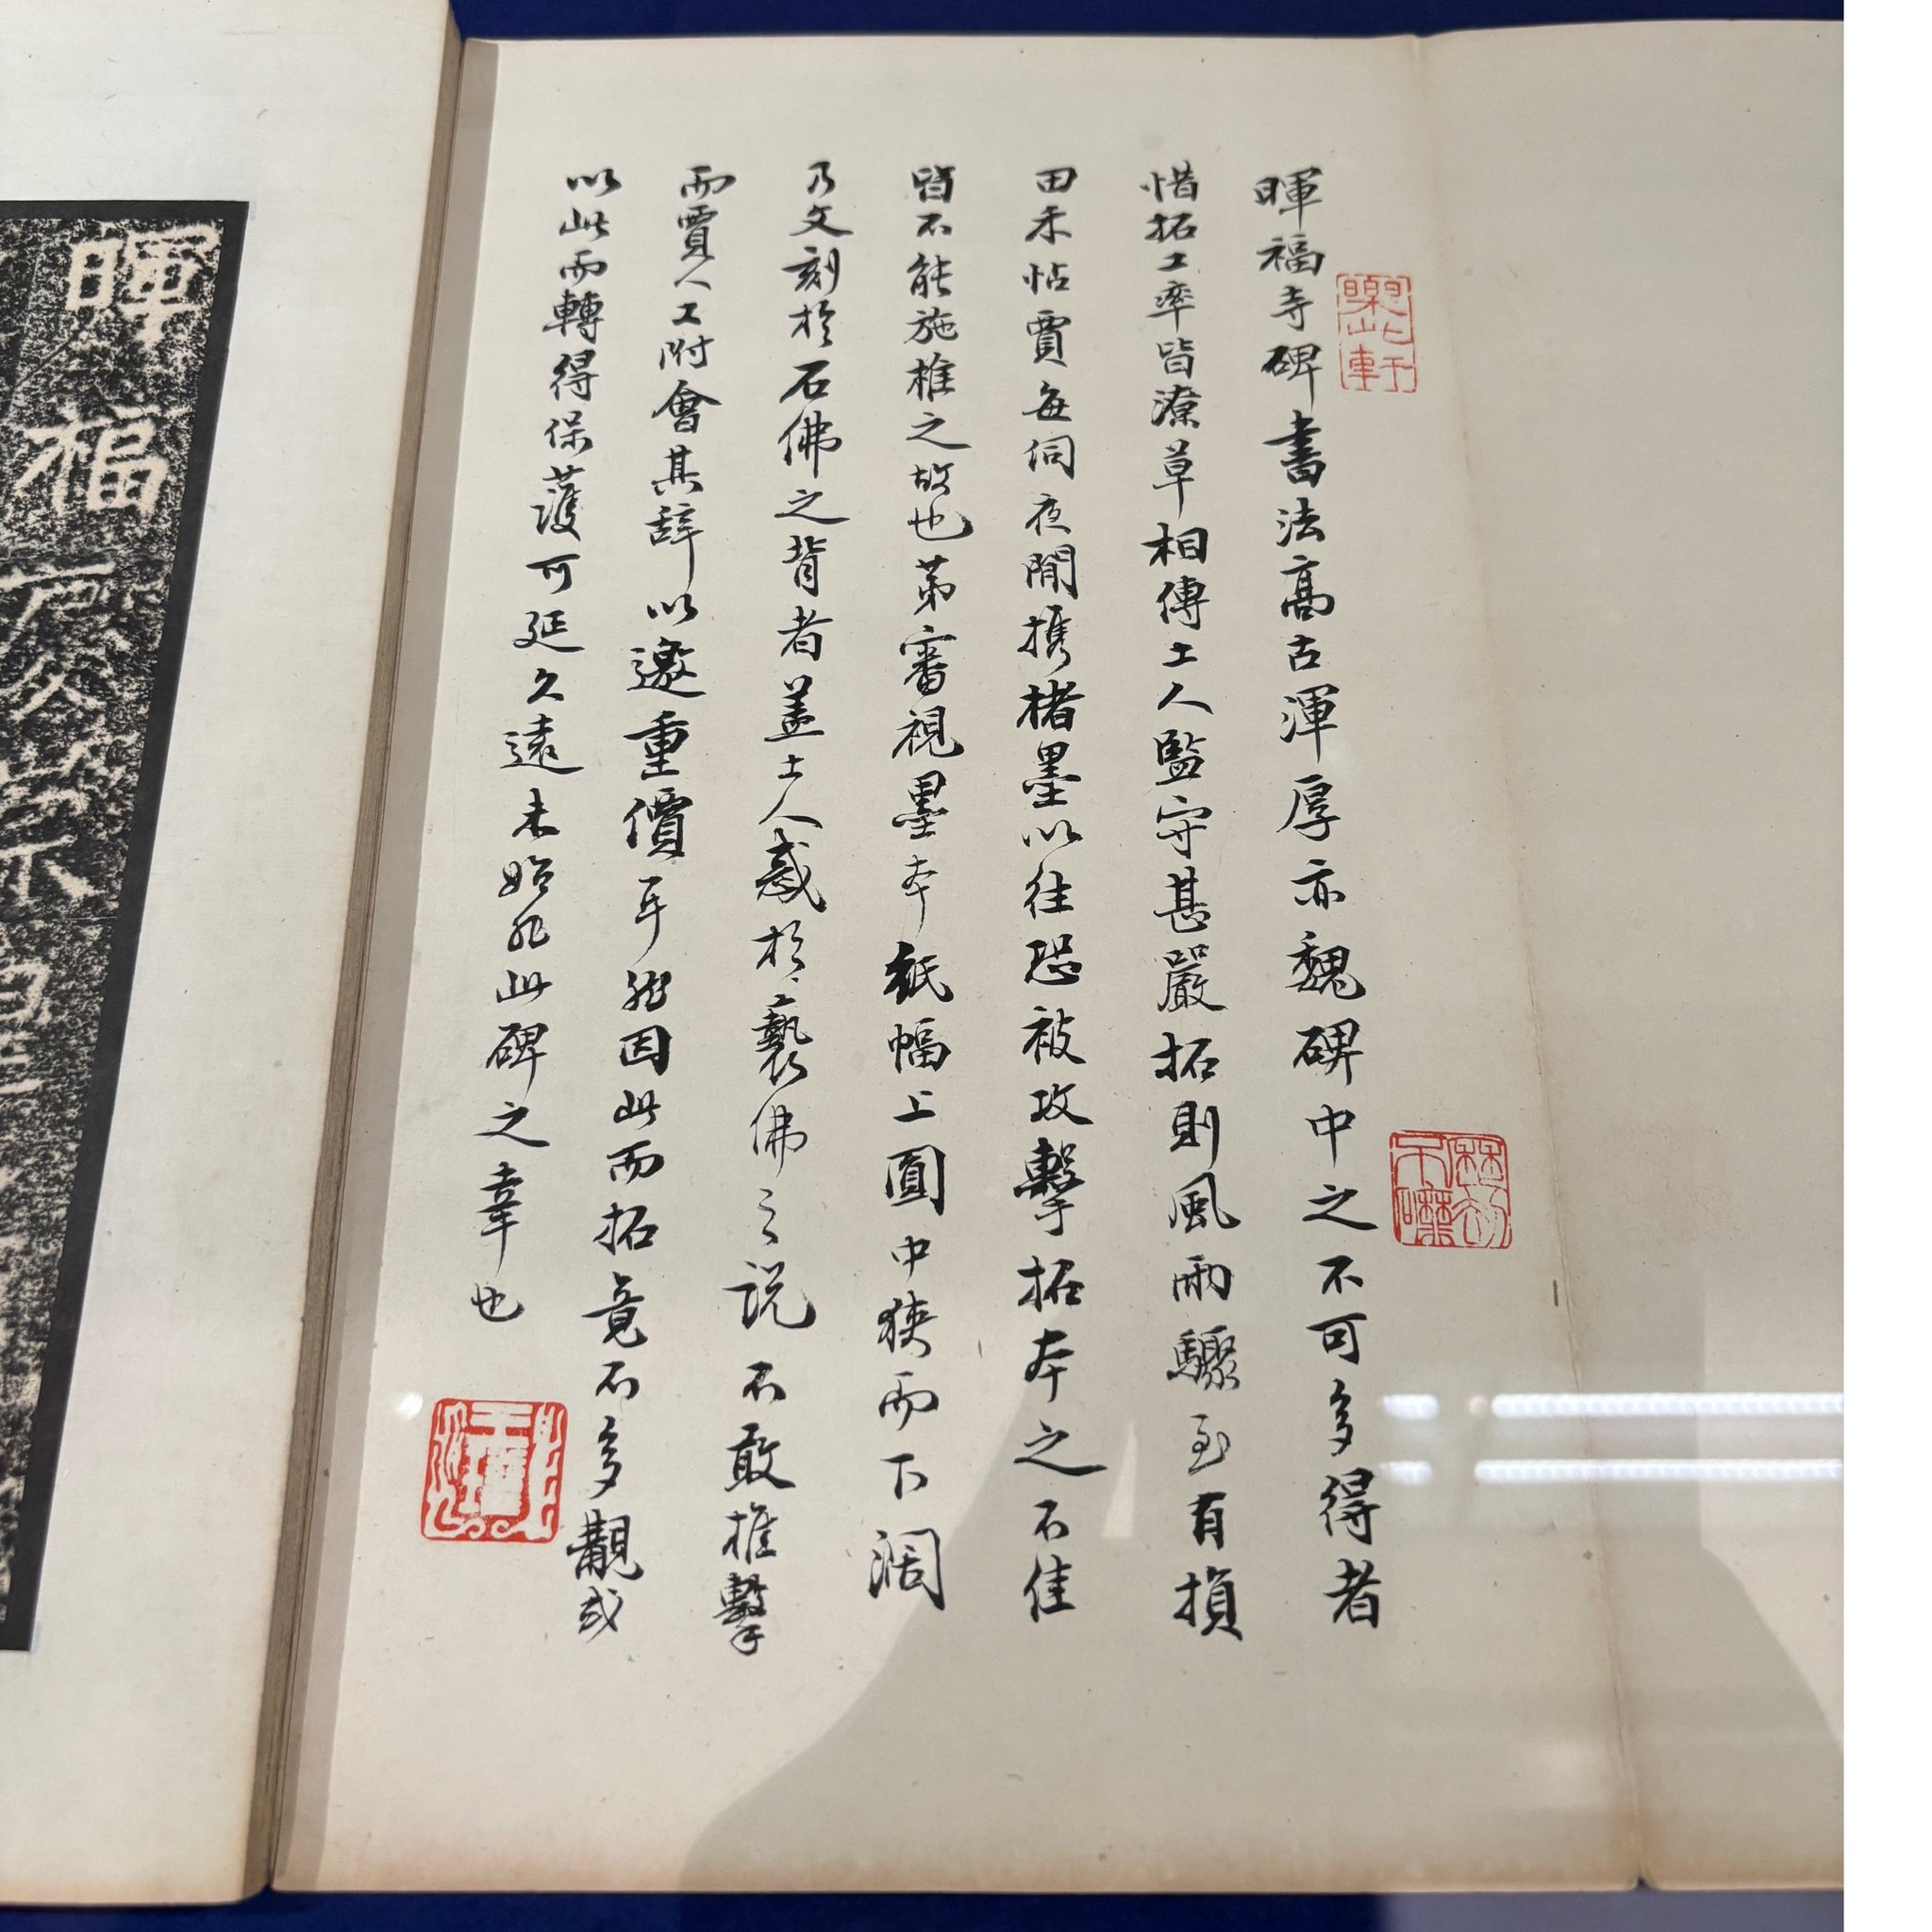 暉福寺碑書法高古渾厚亦魏碑中之不可多得者
惜拓工率皆潦草相傳土人監守甚嚴拓則風雨驟至有損
田禾帖賈每伺夜閒携楮墨以往恐被攻擊拓本之不佳
皆不能施椎之故也苐審視墨本紙幅上圓中狹而下濶
乃文刻於石佛之背者盖士人惑於褻佛之説不敢椎擊
而賈人工附會其辭以邀重價耳然因此而拓竟不多覯或
以此而轉得保護可延久遠未始非此碑之幸也
暉福